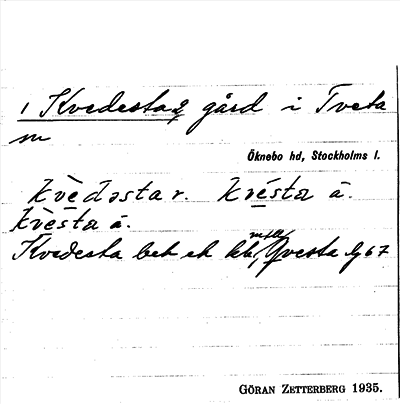 1 Kvedesta 2 gård i Tveta
sn
Öknebo hd, Stockholms l.
kvèdəsta r. kvésta ä.
kvèsta ä.
Kvedesta bet et Qvesta 67
GÖRAN ZETTERBERG 1935.